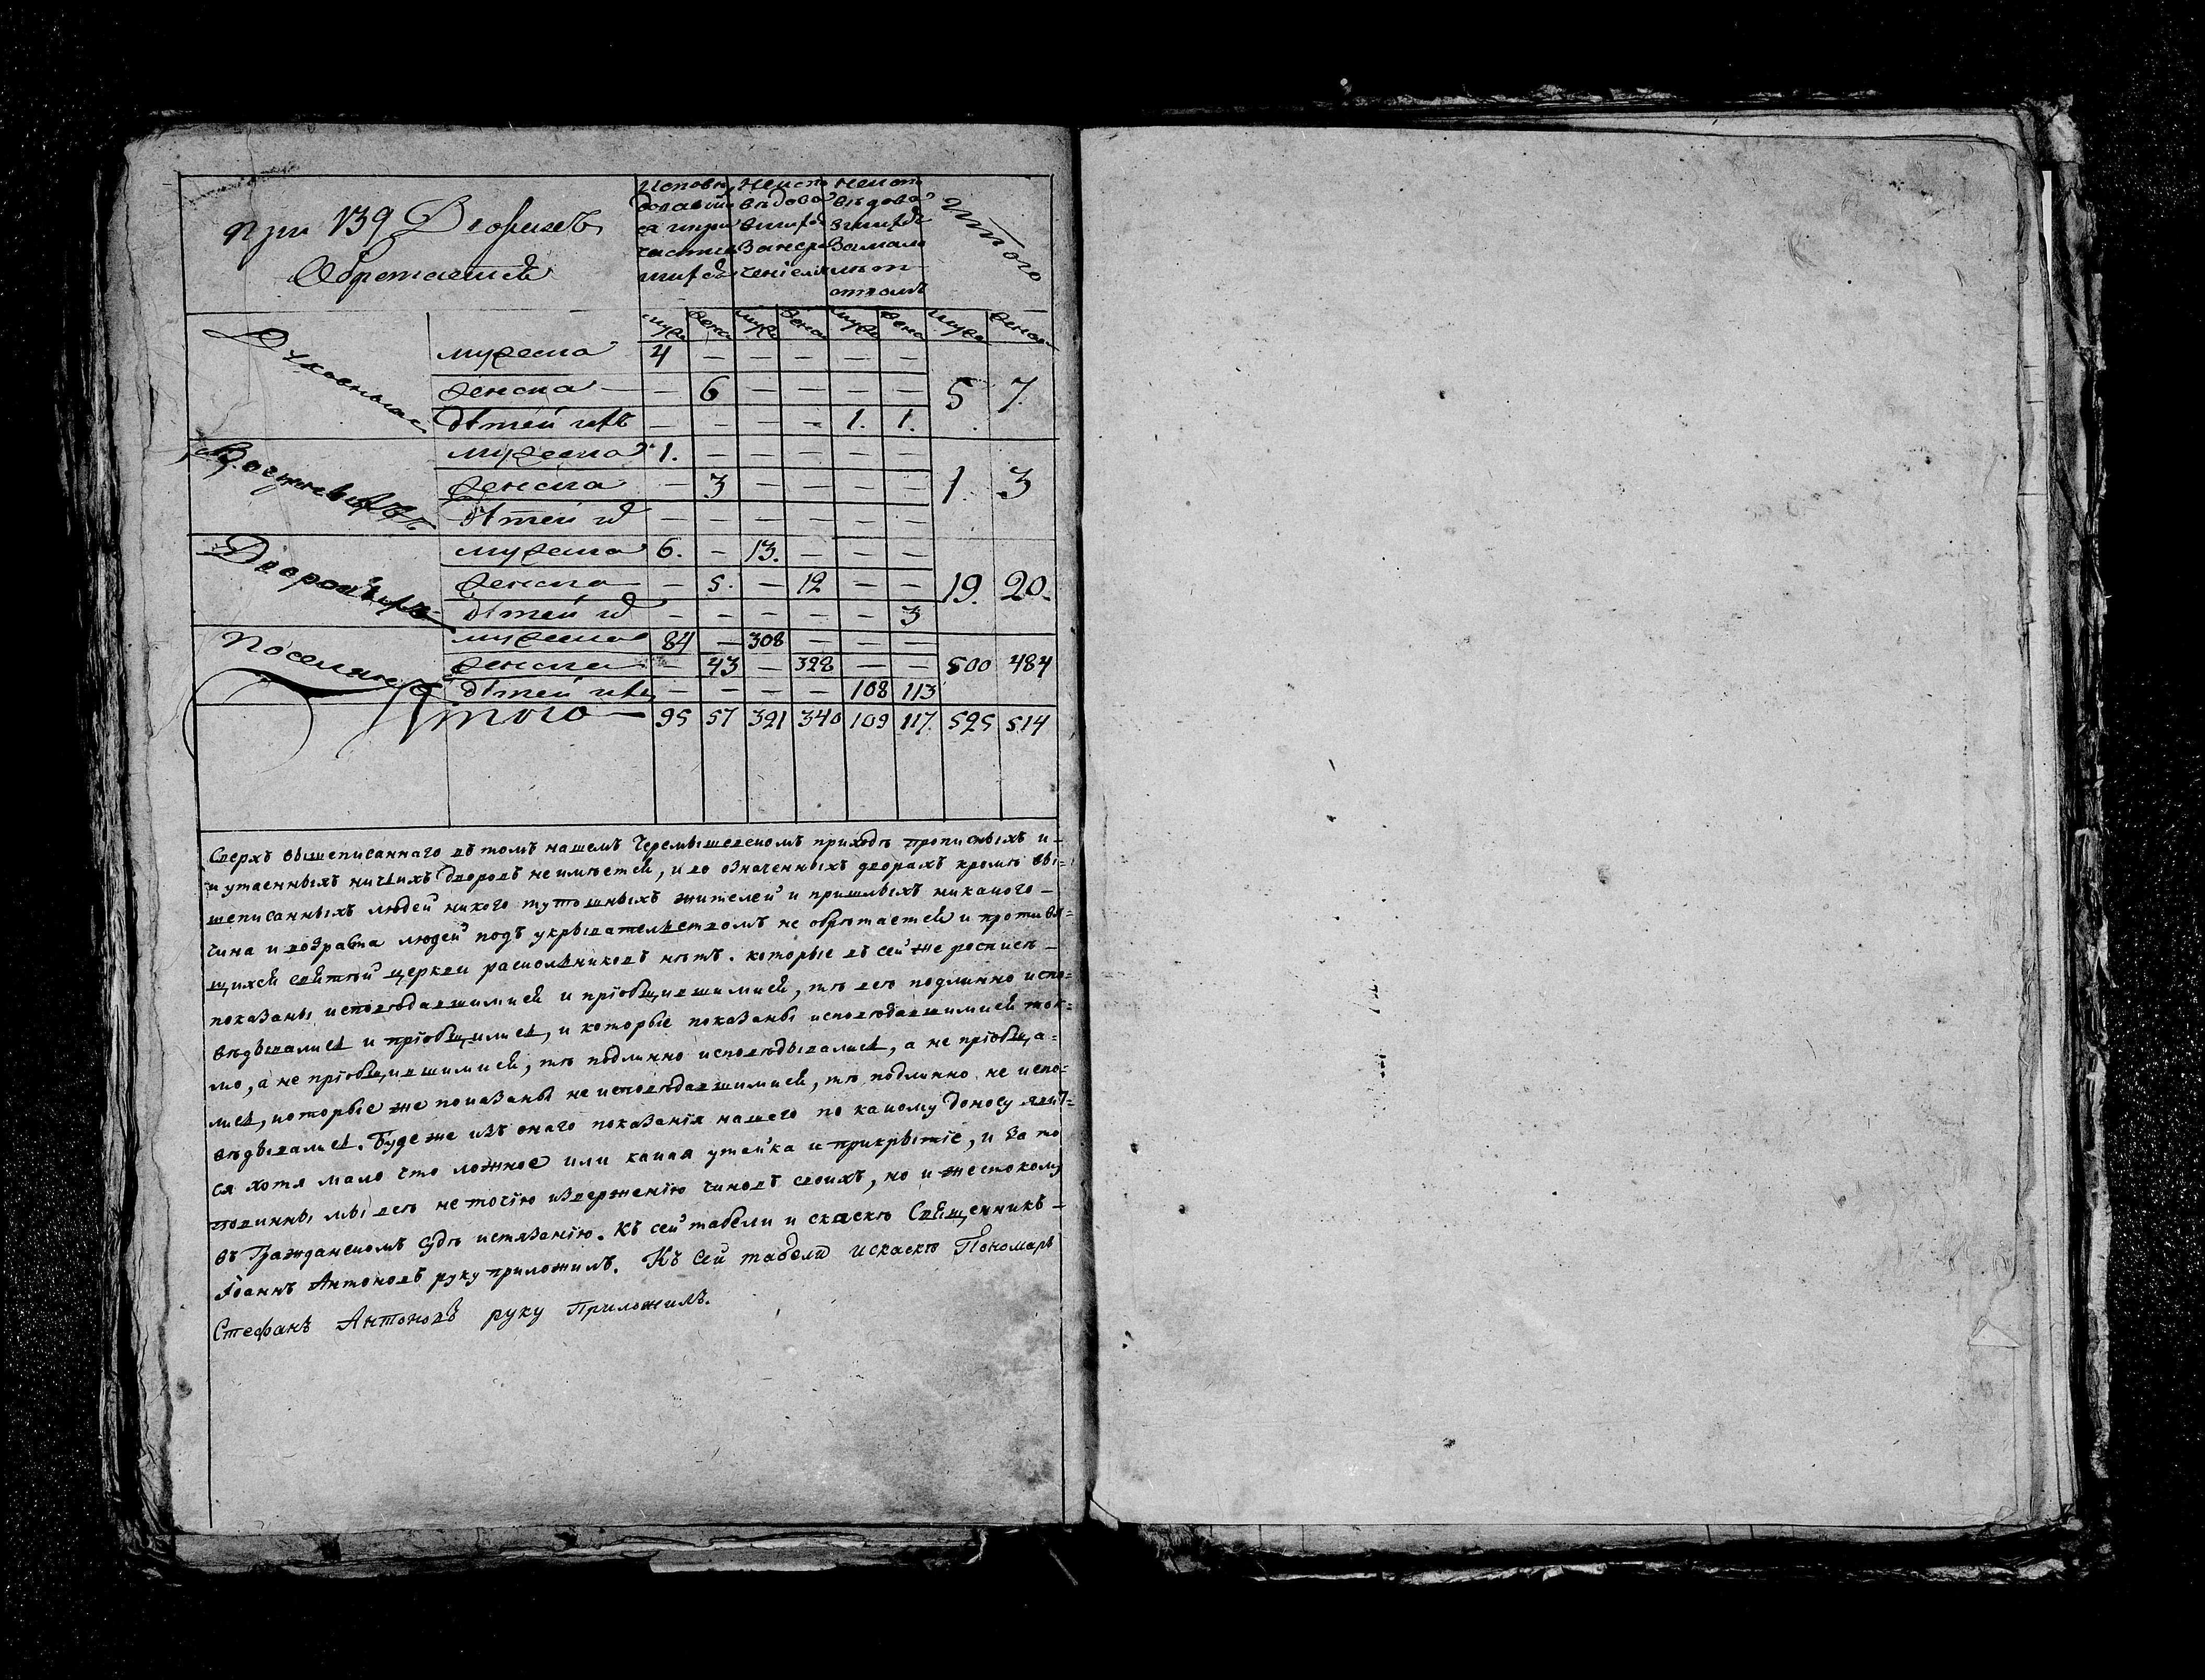 при 139 дворахъ
Обретаетсѧ
Исповѣ Неиспо Неиспо
довавши вѣдова вѣдова
ся и при вшихъ вшихъ
частив за нера за мало
шихсѧ ченіемъ лѣт
ством
Итого
муже жена муже жена муже жена муже женъ
Духовных
мужеска 4 — — — — —
женска — 6 — — — — 5 7
дѣтей ихъ — — — — 1. 1.
мужеска 1. — — — — —
женска — 3 — — — — 1. 3
дѣтей их — — — — — —
мужеска 6. — 13. — — —
женска — 5. — 12 — — 19. 20.
дѣтей их — — — — — 3
Поселянъ
мужеска 84 — 308 — — —
женска — 43 — 328 — — 500 484
дѣтей ихъ — — — — 108 113
Итого — 95 57 321 340 109 117. 525 514
Сверхъ вышеписаннаго въ томъ нашемъ Черемышевскомъ приходѣ прописныхъ и –
и утаенныхъ ничьихъ дворовъ не имѣетсѧ, и во означенныхъ дворахъ кромѣ вы=
шеписанныхъ людей никого тутошныхъ жителей и пришлыхъ никакого –
чина и возраста людей подъ укрывательствомъ не обрѣтаетсѧ и противѧ=
щихсѧ свѧтѣй церкви раскольниковъ нѣтъ. которые въ сей же росписѣ –
показаны исповѣдавшимисѧ и пріобщившимисѧ, тѣ всѣ подлинно испо=
вѣдывались и пріобщились, и которые показаны исповѣдавшимисѧ ток=
мо, а не пріобщившимисѧ, тѣ подлинно исповѣдывались, а не пріобща=
лись, которые же показаны не исповѣдавшимисѧ, тѣ подлинно не испо=
вѣдывались. Буде же изъ онаго показанія нашего по какому доносу явит=
ся хотя мало что ложное или какая утайка и прикрытіе, и за то
повинны мы всѣ не точію изверженію чиновъ своихъ, но и жестокому
въ Гражданскомъ судѣ истязанію. Къ сей табели и скаскѣ Свѧщенникъ –
Іоаннъ Антоновъ руку приложилъ. Къ сей табели и скаскѣ Пономарь
Стефанъ Антоновъ руку Приложилъ.